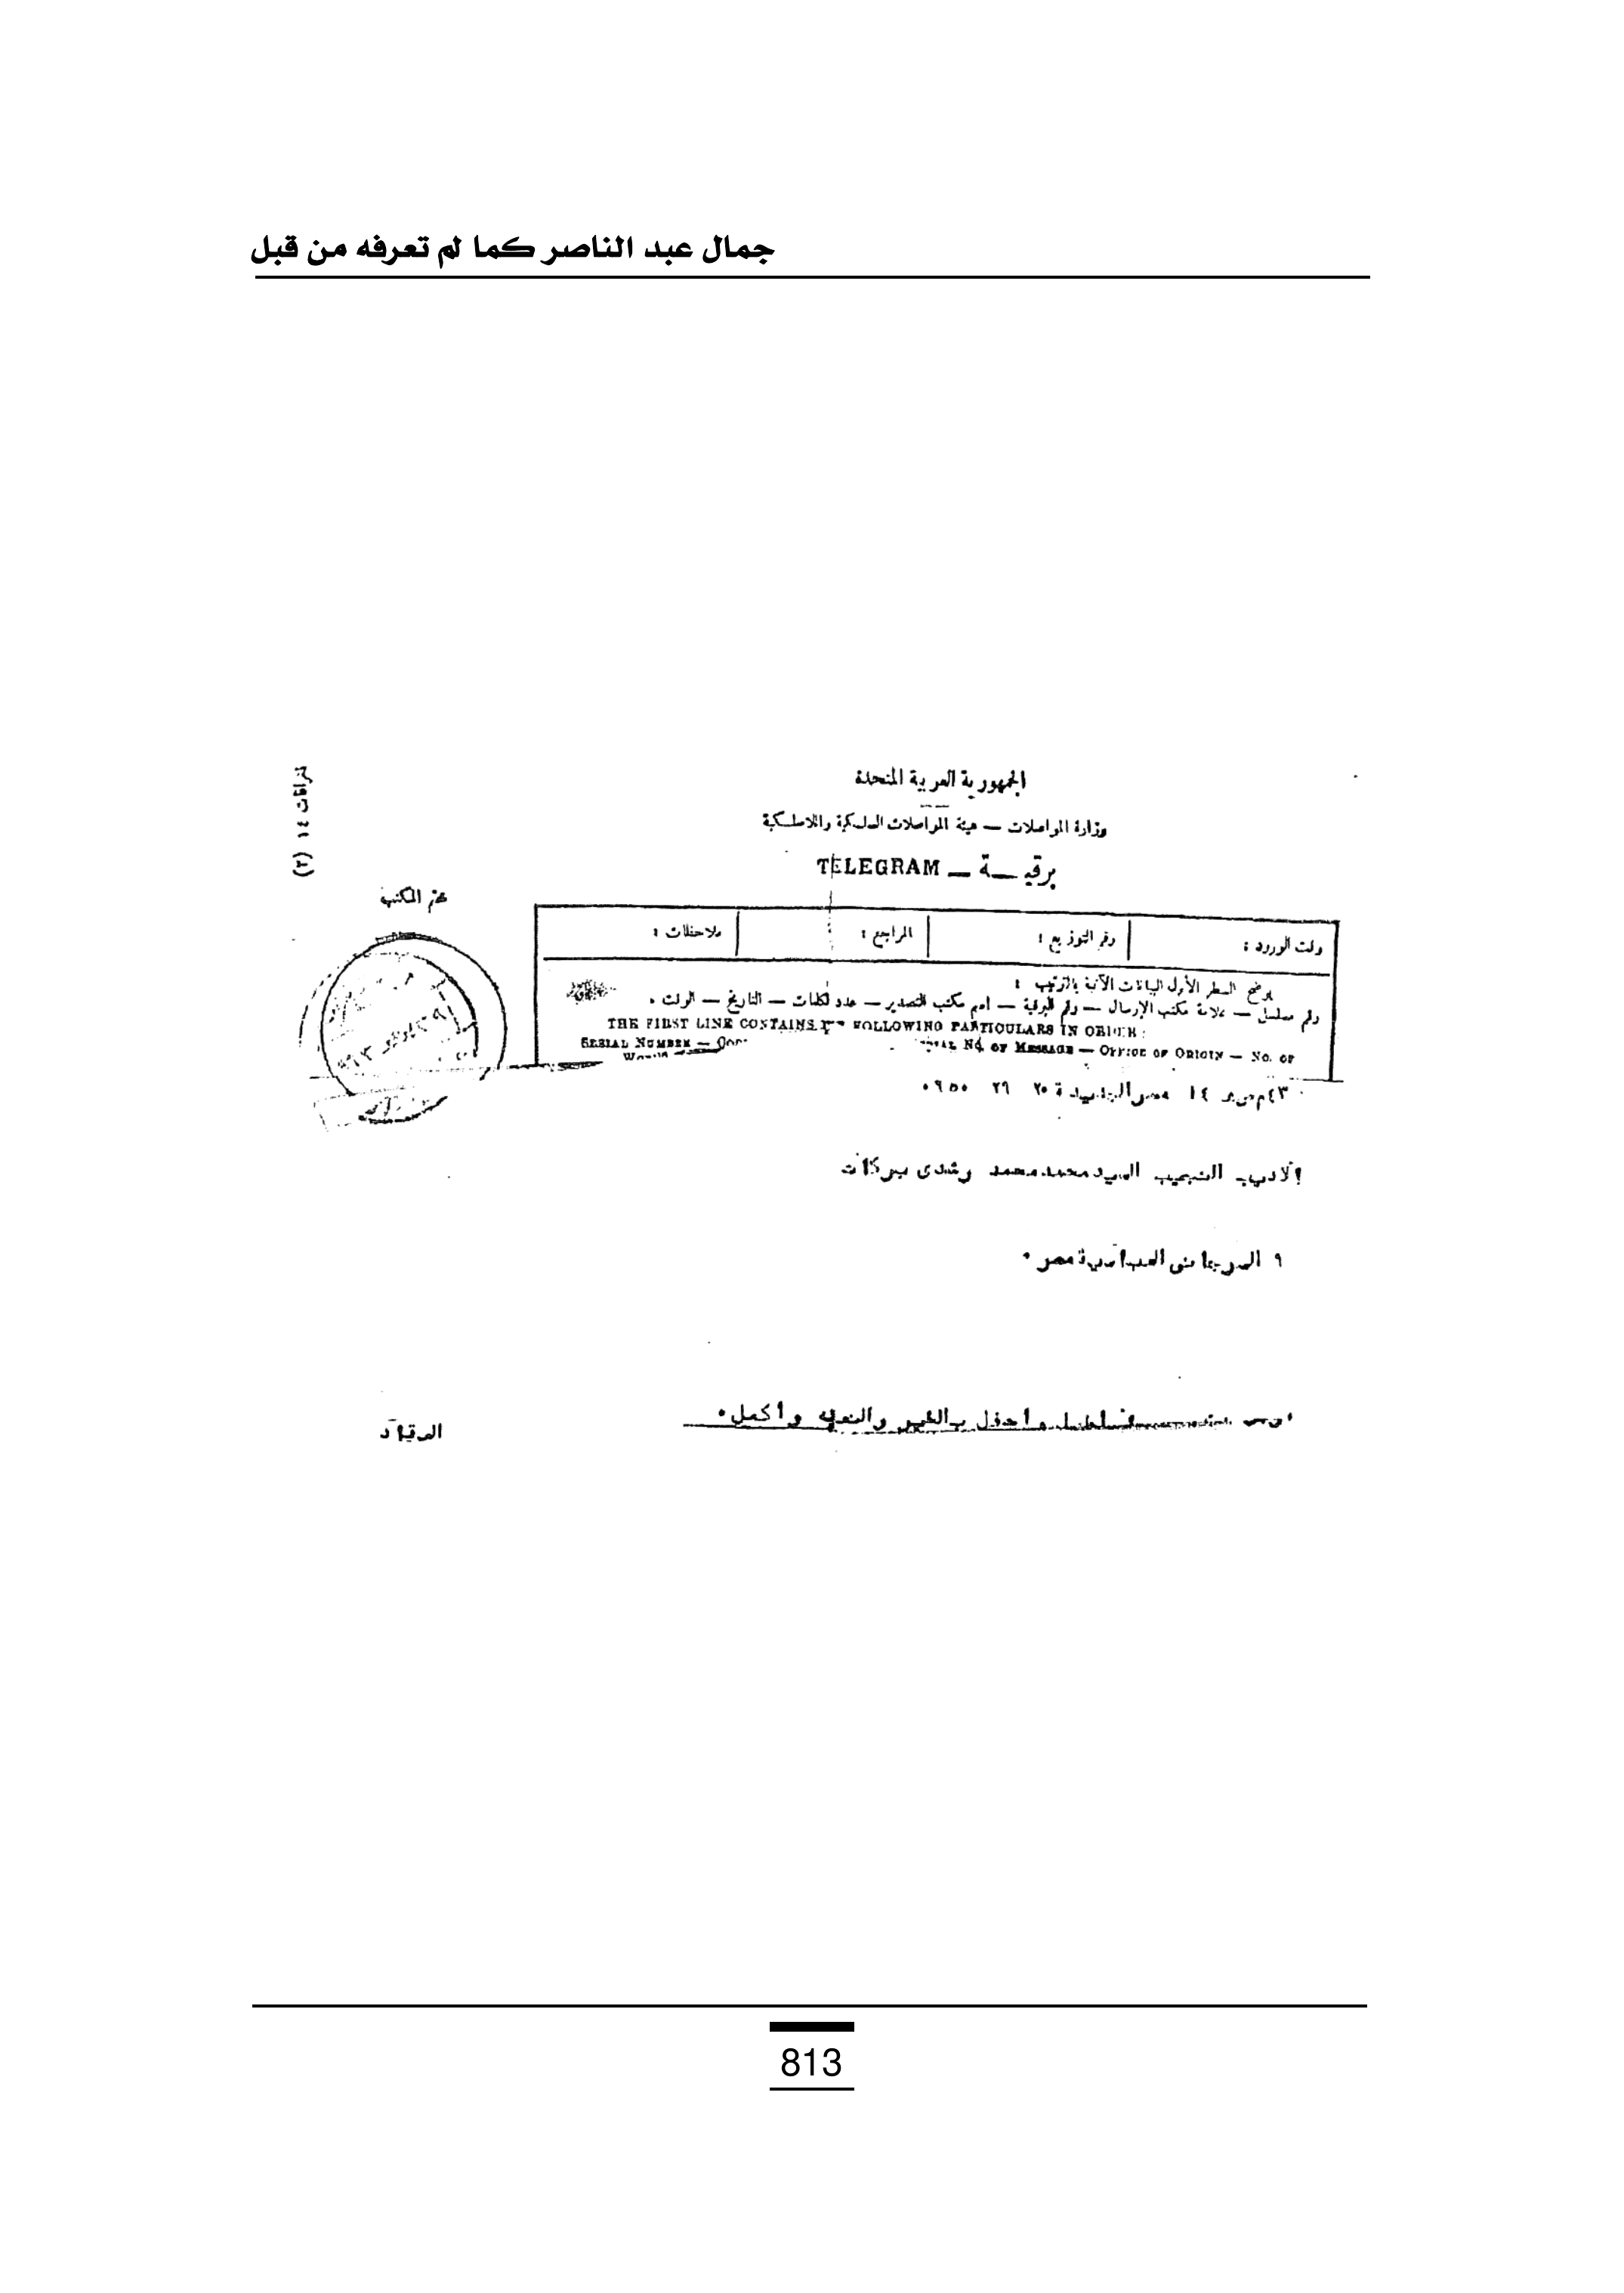 جمال عبد الناصر كما لم تعرفه من قبل
تلغرافات ١٤ (٢)
الجمهورية العربية المتحدة
وزارة المواصلات — هيئة المواصلات السلكية واللاسلكية
برقيـــة — TELEGRAM
ختم المكتب
وقت الورود : رقم التوزيع : المراجع : ملاحظات :
يوضح السطر الأول البيانات الآتية بالترتيب :
رقم مسلسل — علامة مكتب الإرسال — رقم البرقية — اسم مكتب التصدير — عدد الكلمات — التاريخ — الوقت .
THE FIRST LINE CONTAINS FOLLOWING PARTICULARS IN ORDER :
SERIAL NUMBER — No. OF MESSAGE — OFFICE OF ORIGIN — No. OF
١٤ مصر الجديدة ٢٠ ٢٩ ٠٩٥٠
الاديب السيد محمد محمد رشدى بركات
٩ مصر ٠
واحفل بالخير والنعمه واكمل٠
العقاد
813